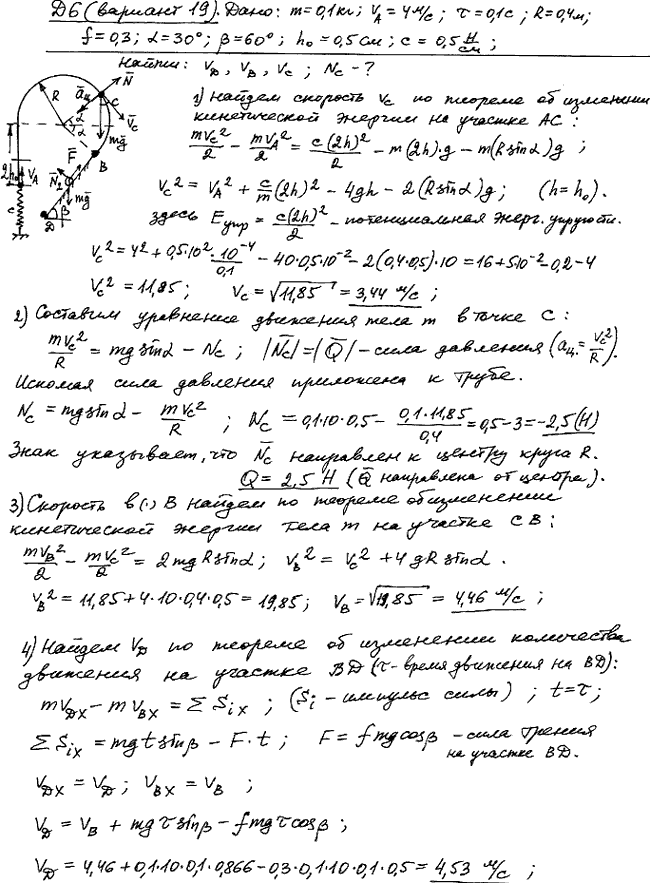 Д6 (вариант 19). Дано: m=0,1кг; V_A = 4м/с; τ=0,1с; R=0,4м;
f=0,3; α=30°; β=60°; h₀=0,5см; c = 0,5 Н/см;
Найти: V_D, V_B, V_C; N_C-?
N̄
ā_ц
C
R
α
α
V̄_C
mḡ
F̄
B
2h₀
V_A
N̄₁
mḡ
c
D
β
1) Найдем скорость V_C по теореме об изменении
кинетической энергии на участке AC:
mV_C²/2 - mV_A²/2 = c(2h)²/2 - m(2h)·g - m(R sinα)g ;
V_C² = V_A² + c/m (2h)² - 4gh - 2(R sinα)g; (h=h₀).
здесь E_упр = c(2h)²/2 - потенциальная энерг. упругости.
V_C² = 4² + 0,5·10²·10⁻⁴/0,1 - 40·0,5·10⁻² - 2(0,4·0,5)·10 = 16+5·10⁻²-0,2-4
V_C² = 11,85; V_C = √11,85 = 3,44 м/с;
2) Составим уравнение движения тела m в точке C:
mV_C²/R = mg sinα - N_C; |N̄_C|=|Q̄| - сила давления (a_ц = V_C²/R).
Искомая сила давления приложена к трубе.
N_C = mg sinα - mV_C²/R ; N_C = 0,1·10·0,5 - 0,1·11,85/0,4 = 0,5 - 3 = -2,5(Н)
Знак указывает, что N̄_C направлен к центру круга R.
Q = 2,5 Н (Q̄ направлена от центра).
3) Скорость в (·) B найдем по теореме об изменении
кинетической энергии тела m на участке CB:
mV_B²/2 - mV_C²/2 = 2mgR sinα; V_B² = V_C² + 4gR sinα.
V_B² = 11,85+4·10·0,4·0,5 = 19,85; V_B = √19,85 = 4,46 м/с;
4) Найдем V_D по теореме об изменении количества
движения на участке BD (τ-время движения на BD):
mV_DX - mV_BX = Σ S_ix ; (S_i - импульс силы) ; t=τ;
Σ S_ix = mgt sinβ - F·t; F = fmg cosβ - сила трения
на участке BD.
V_DX = V_D; V_BX = V_B ;
V_D = V_B + mgτ sinβ - fmgτ cosβ;
V_D = 4,46+0,1·10·0,1·0,866-0,3·0,1·10·0,1·0,5 = 4,53 м/с ;